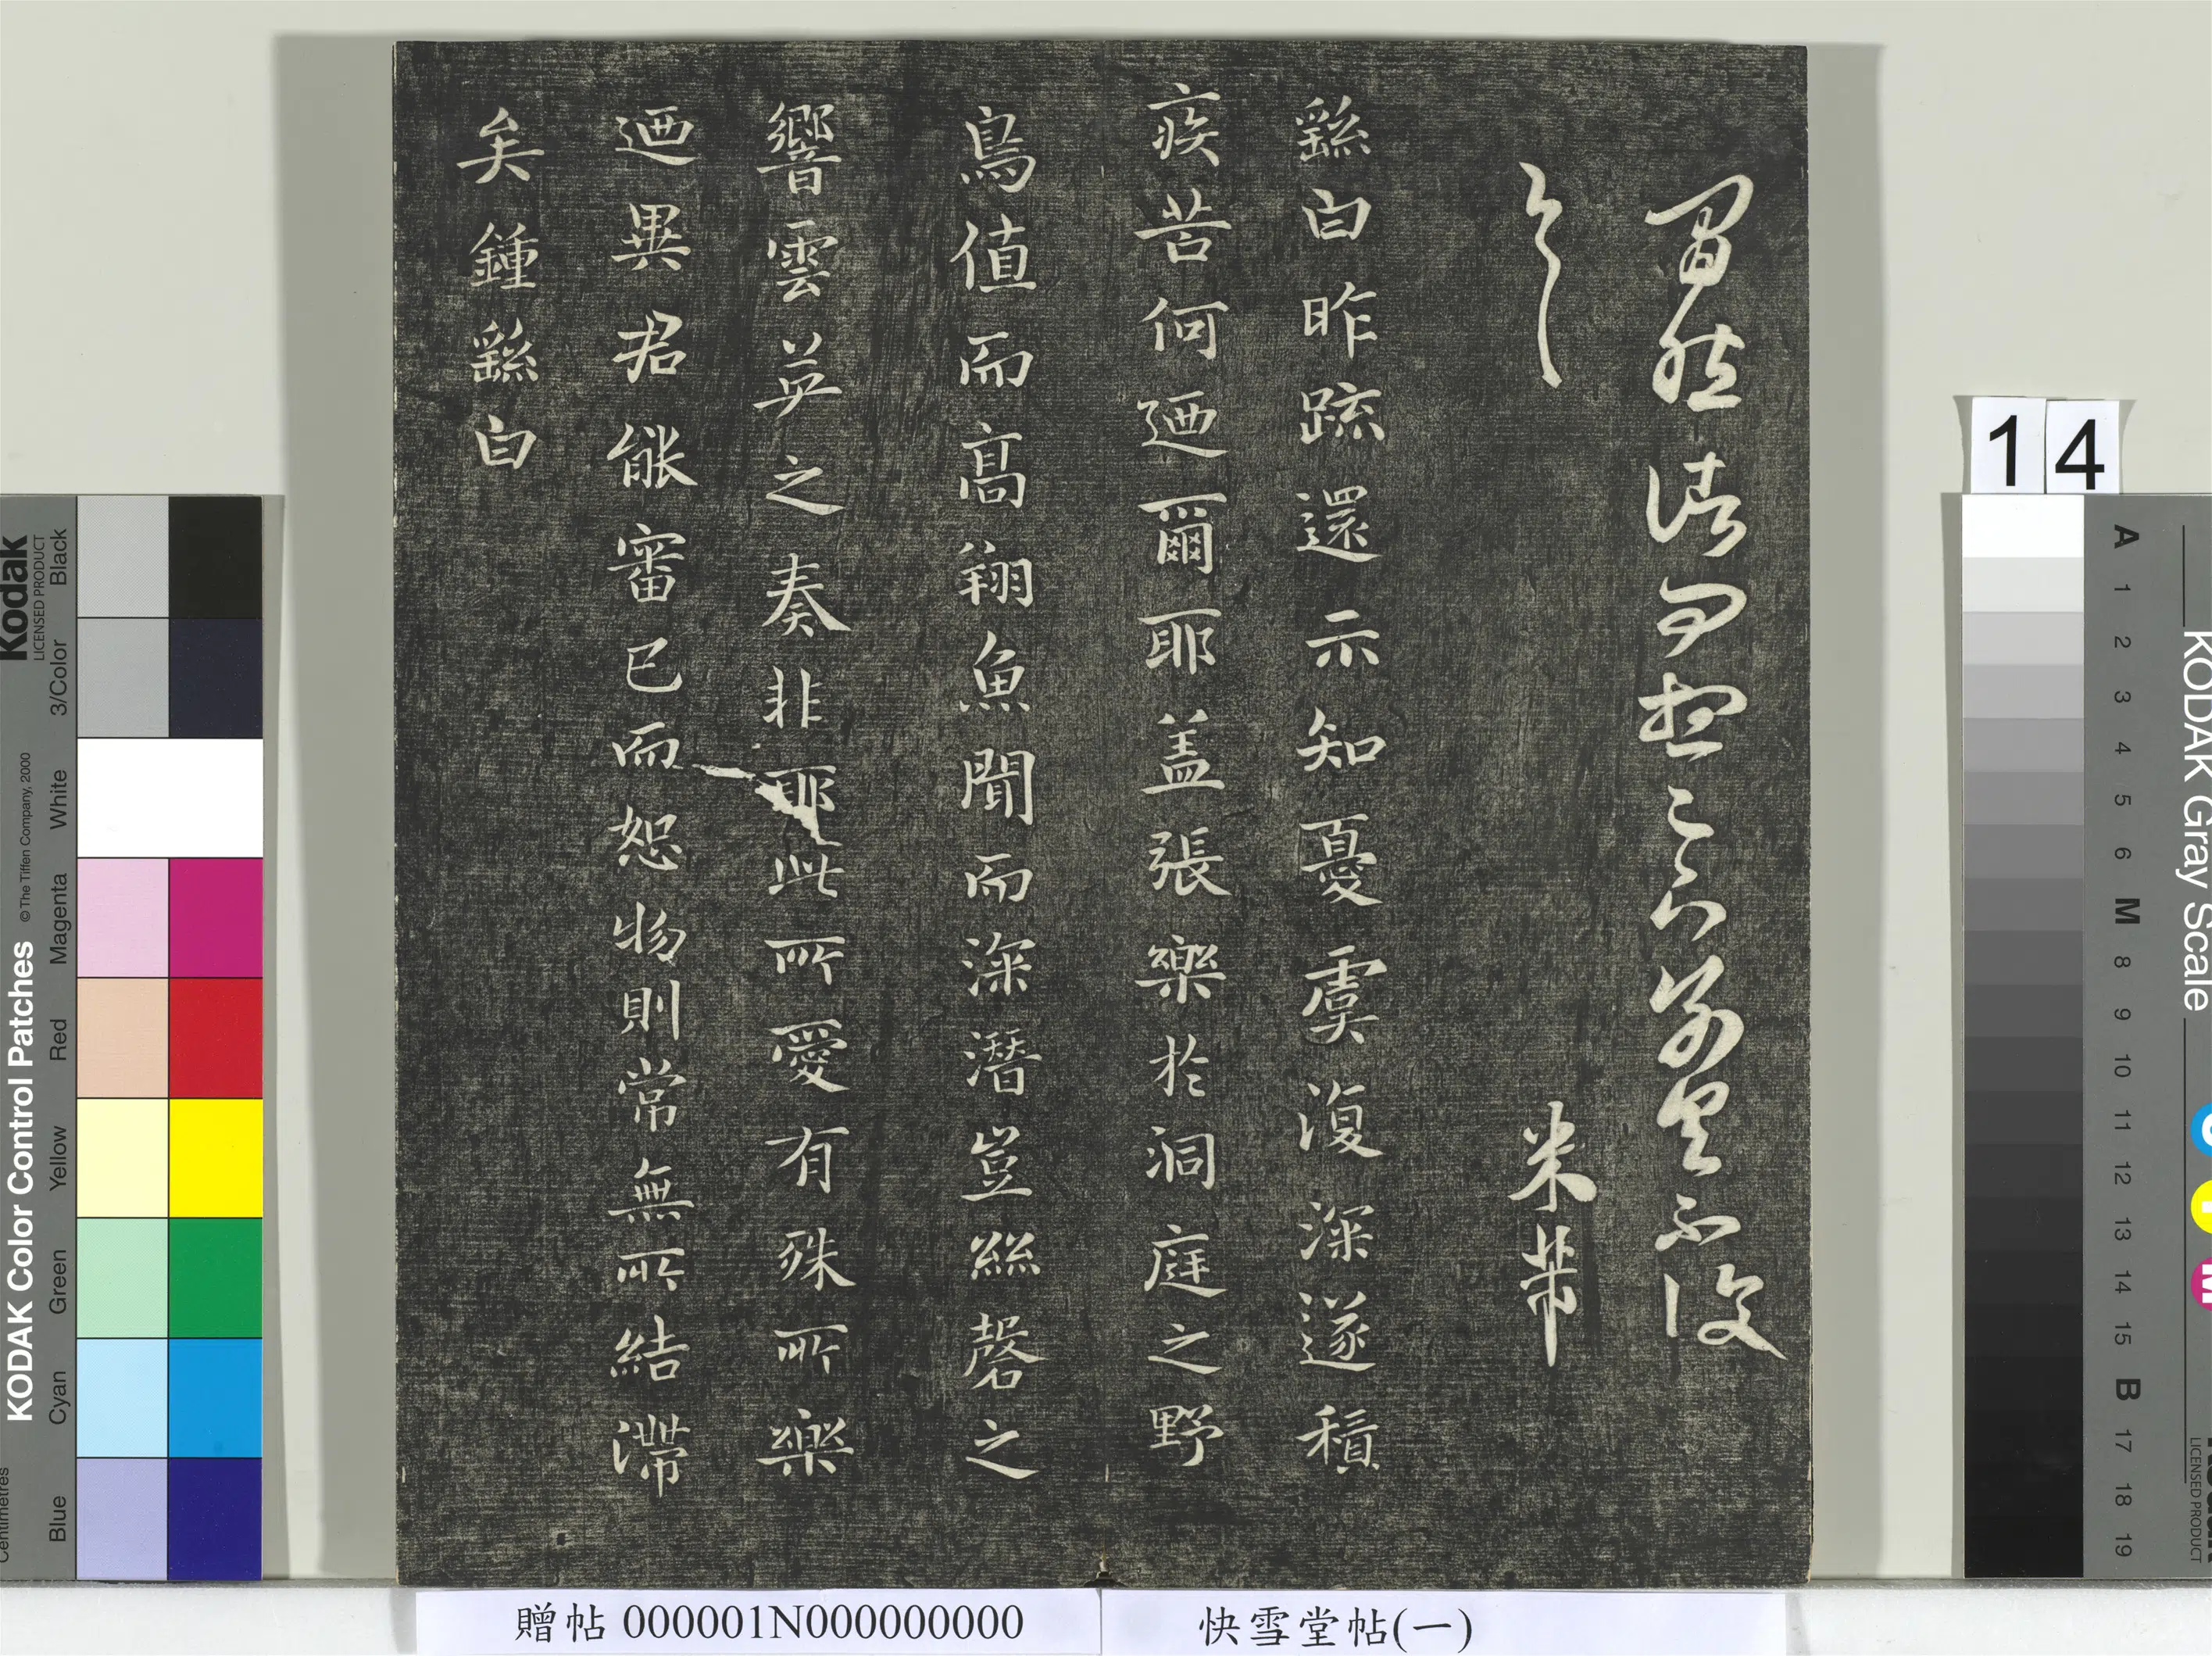 米芾
繇白昨疏還示知憂虞復深遂積
疾苦何迺爾耶盖張樂於洞庭之野
鳥值而高翔魚聞而深潛豈絲磬之
響雲英之奏非耶此所愛有殊所樂
迺異君能審已而恕物則常無所結滯
矣鍾繇白
贈帖 000001N000000000
快雪堂帖(一)
14
KODAK Gray Scale
A 1 2 3 4 5 6 M 8 9 10 11 12 13 14 15 B 17 18 19
LICENSED PRODUCT
Kodak
LICENSED PRODUCT
KODAK Color Control Patches
© The Tiffen Company, 2000
Black
3/Color
White
Magenta
Red
Yellow
Green
Cyan
Blue
Centimetres